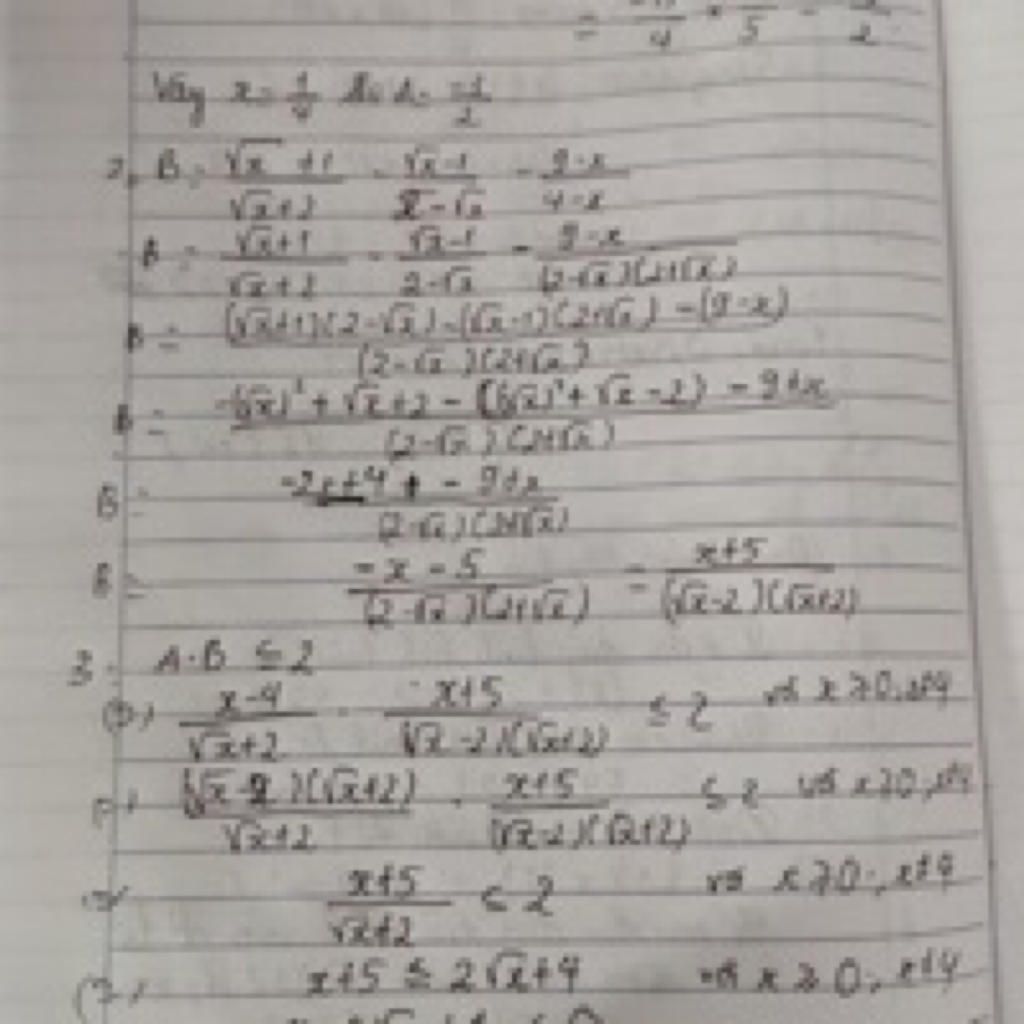 = 4 · 5 = 2
Vậy x = 1/4 thì A = -1/2
2. B = (√x + 1)/(√x + 2) - (√x - 1)/(2 - √x) - (9 - x)/(4 - x)
B = (√x + 1)/(√x + 2) - (√x - 1)/(2 - √x) - (9 - x)/((2 - √x)(2 + √x))
B = ((√x + 1)(2 - √x) - (√x - 1)(2 + √x) - (9 - x))/((2 - √x)(2 + √x))
B = (-(√x)² + √x + 2 - ((√x)² + √x - 2) - 9 + x)/((2 - √x)(2 + √x))
B = (-2x + 4 - 9 + x)/((2 - √x)(2 + √x))
B = (-x - 5)/((2 - √x)(2 + √x)) = (x + 5)/((√x - 2)(√x + 2))
3. A.B ≤ 2
(x - 4)/(√x + 2) · (x + 5)/((√x - 2)(√x + 2)) ≤ 2 với x ≥ 0, x ≠ 4
((√x - 2)(√x + 2))/(√x + 2) · (x + 5)/((√x - 2)(√x + 2)) ≤ 2 với x ≥ 0, x ≠ 4
(x + 5)/(√x + 2) ≤ 2 với x ≥ 0, x ≠ 4
x + 5 ≤ 2√x + 4 với x ≥ 0, x ≠ 4